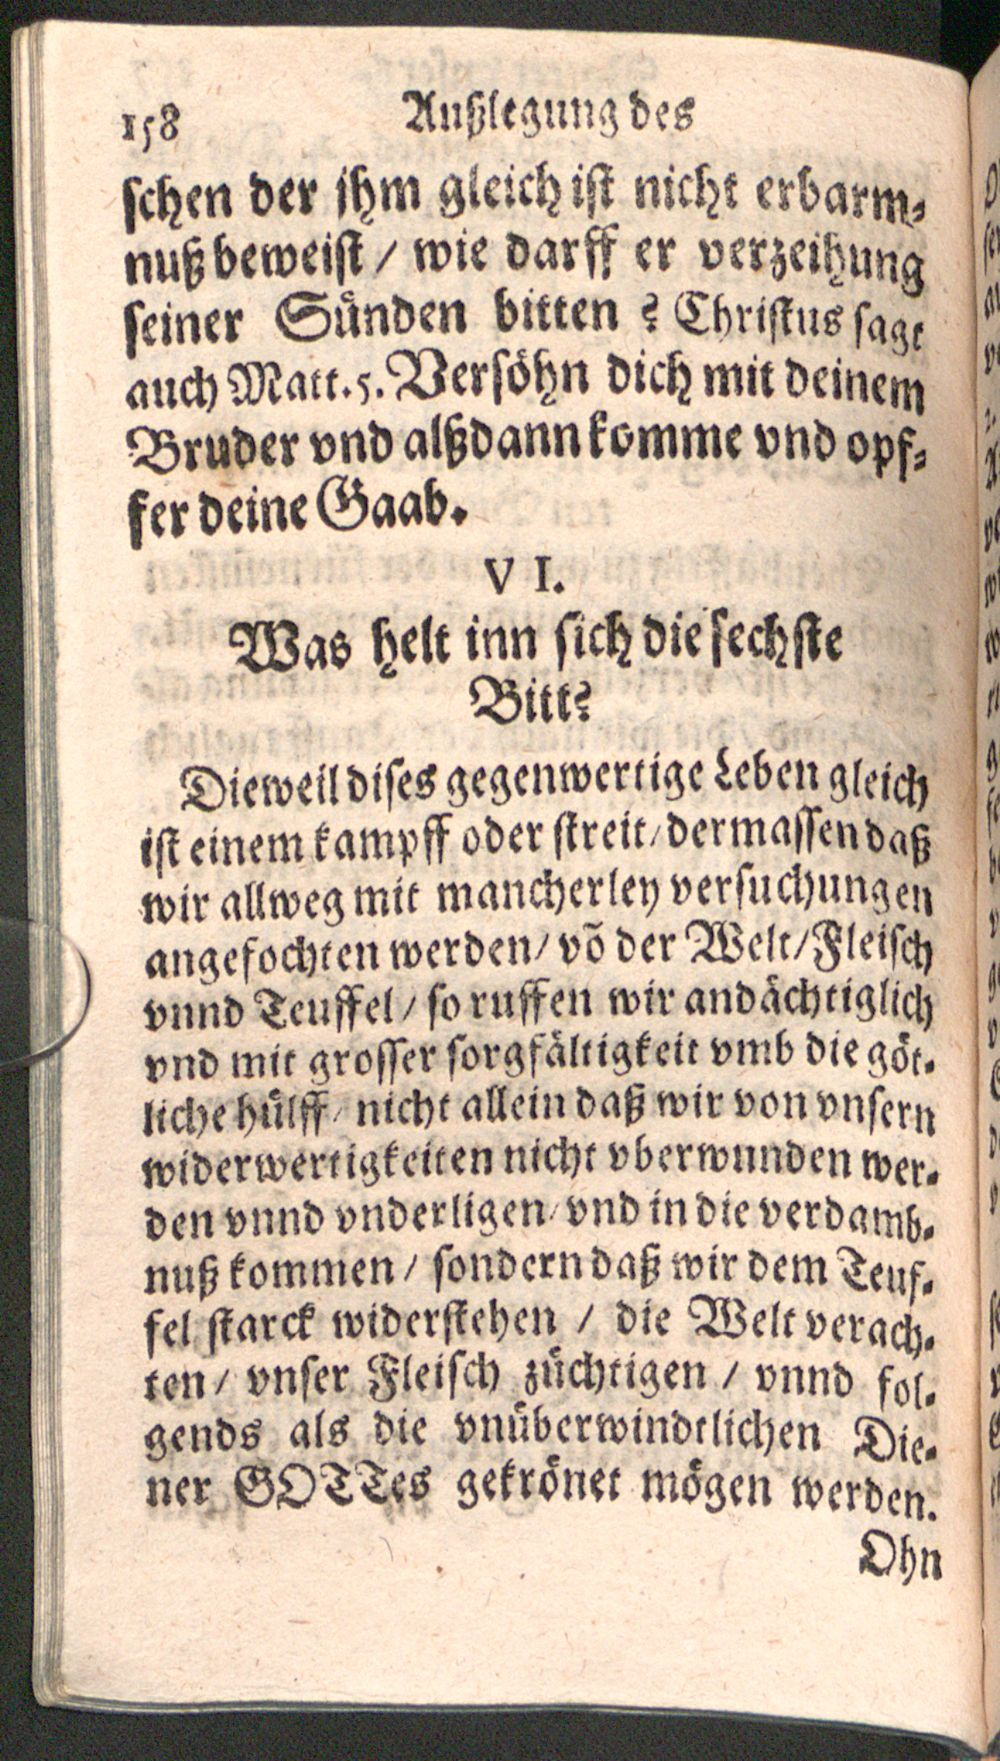 158 Außlegung des
schen der jhm gleich ist nicht erbarm-
nuß beweist / wie darff er verzeihung
seiner Sünden bitten ? Christus sagt
auch Matt. 5. Versöhn dich mit deinem
Bruder vnd alßdann komme vnd opf-
fer deine Gaab.
VI.
Was helt inn sich die sechste
Bitt?
Dieweil dises gegenwertige Leben gleich
ist einem kampff oder streit / dermassen daß
wir allweg mit mancherley versuchungen
angefochten werden / võ der Welt / Fleisch
vnnd Teuffel / so ruffen wir andächtiglich
vnd mit grosser sorgfältigkeit vmb die göt-
liche hülff / nicht allein daß wir von vnsern
widerwertigkeiten nicht vberwunden wer-
den vnnd vnderligen / vnd in die verdamb-
nuß kommen / sondern daß wir dem Teuf-
fel starck widerstehen / die Welt verach-
ten / vnser Fleisch züchtigen / vnnd fol-
gends als die vnüberwindtlichen Die-
ner GOTTes gekrönet mögen werden.
Ohn